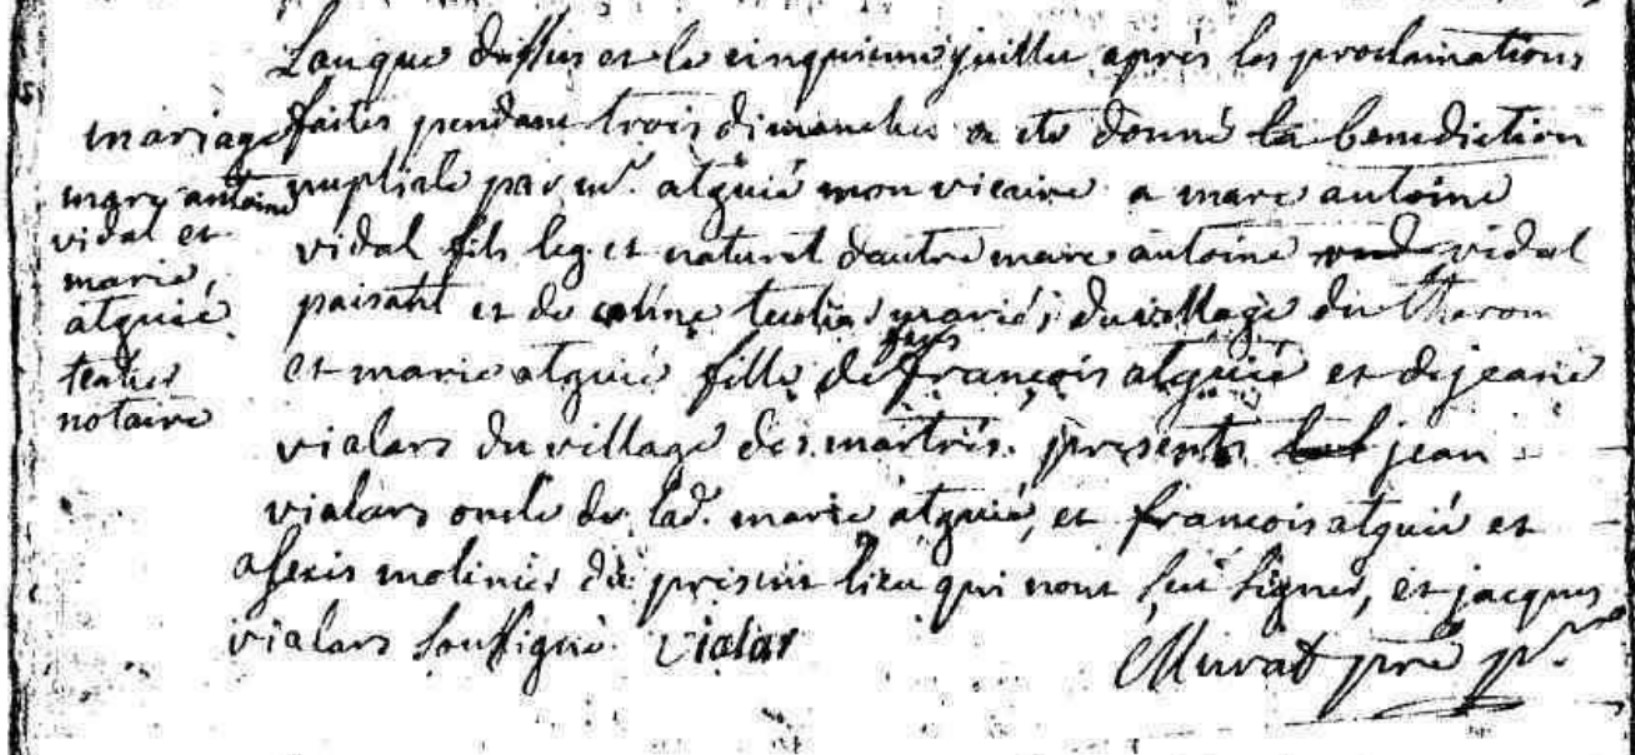 Lan que dessus et le cinquieme juillet après les proclamations
mariage faites pendant trois dimanches a ete donné la benediction
marc antoine nuptiale par mr. atguié mon vicaire a marc antoine
vidal et vidal fils leg. et naturel dautre marc antoine vidal
marie, paisant et de teulier mariés du village du Tharon
atguié et marie atguié fille de feu françois atguié et de jeane
teulier vialars du village des martres. presents jean
notaire vialars oncle de lad. marie atguié, et francois atguié et
alexis molinier du present lieu qui nont seu signer, et jacques
vialars soussigné. vialar Murat pre